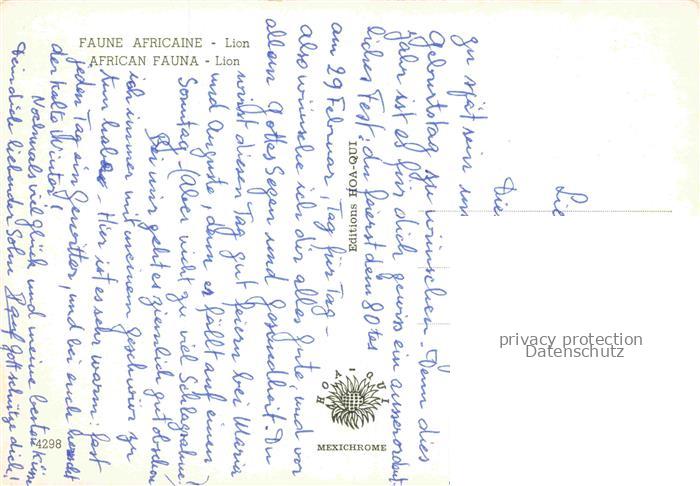 FAUNE AFRICAINE - Lion
AFRICAN FAUNA - Lion
Lie
Die
zu spät sein um
Geburtstag zu wünschen. Denn dies
Jahr ist es für dich gewiss ein ausserordent-
liches Fest: du feierst dein 80tes
am 29 Februar, Tag für Tag -
Also wünsche ich dir alles Gute, und vor
allem Gottes Segen und Gesundheit. Du
wirst diesen Tag gut feiern bei Maria
und Auguste, denn es fällt auf einen
Sonntag - (Aber nicht zu viel Schlagsahne!)
Bei mir geht es ziemlich gut obschon
ich immer mit meinem Geschwür zu
tun habe - Hier ist es sehr warm: fast
jeden Tag ein Gewitter, und bei euch herrscht
der kalte Winter!
Nochmals viel Glück und meine besten Küsse
Dein dich liebender Sohn Gott schütze dich!
Editions HOA-QUI
HOA-QUI
MEXICHROME
4298
privacy protection
Datenschutz